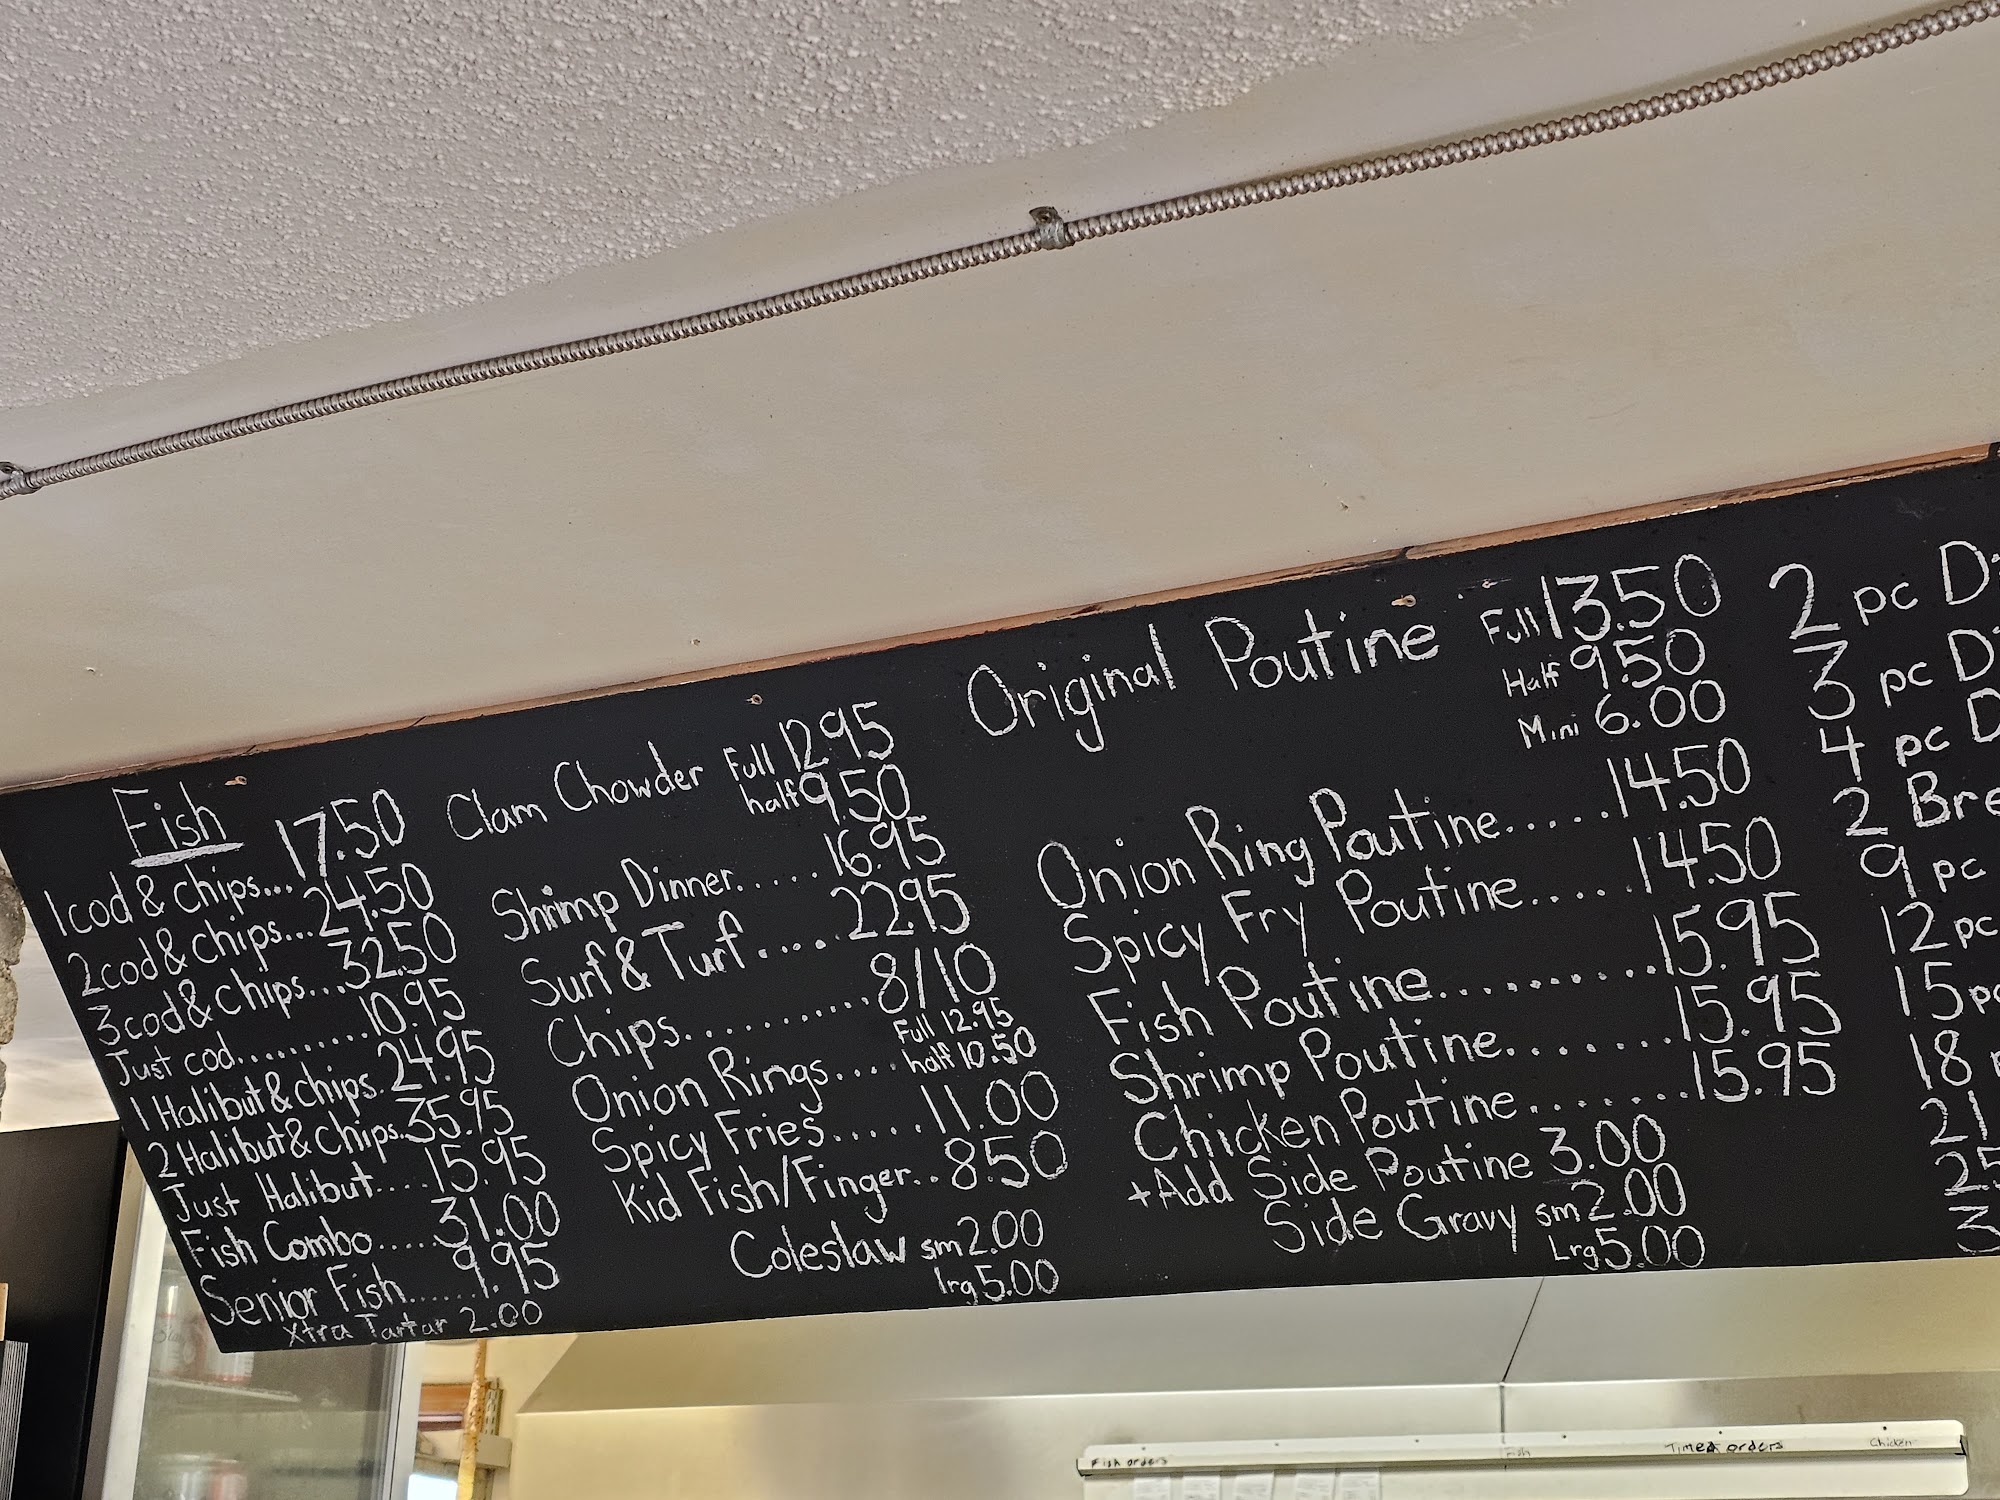 Fish
1 cod & chips... 17.50
2 cod & chips... 24.50
3 cod & chips... 32.50
Just cod.......... 10.95
1 Halibut & chips. 24.95
2 Halibut & chips.. 35.95
Just Halibut.... 15.95
Fish Combo..... 31.00
Senior Fish...... 9.95
Xtra Tartar 2.00
Clam Chowder Full 12.95
half 9.50
Shrimp Dinner..... 16.95
Surf & Turf..... 22.95
Chips........... 8/10
Full 12.95
Onion Rings.... half 10.50
Spicy Fries..... 11.00
Kid Fish/Finger.. 8.50
Coleslaw sm 2.00
lrg 5.00
Original Poutine Full 13.50
Half 9.50
Mini 6.00
Onion Ring Poutine..... 14.50
Spicy Fry Poutine..... 14.50
Fish Poutine......... 15.95
Shrimp Poutine........ 15.95
Chicken Poutine....... 15.95
+Add Side Poutine 3.00
Side Gravy sm 2.00
Lrg 5.00
2 pc
3 pc
4 pc
2
9 pc
12 pc
15
18
21
Fish orders
Fish
Timed orders
Chicken